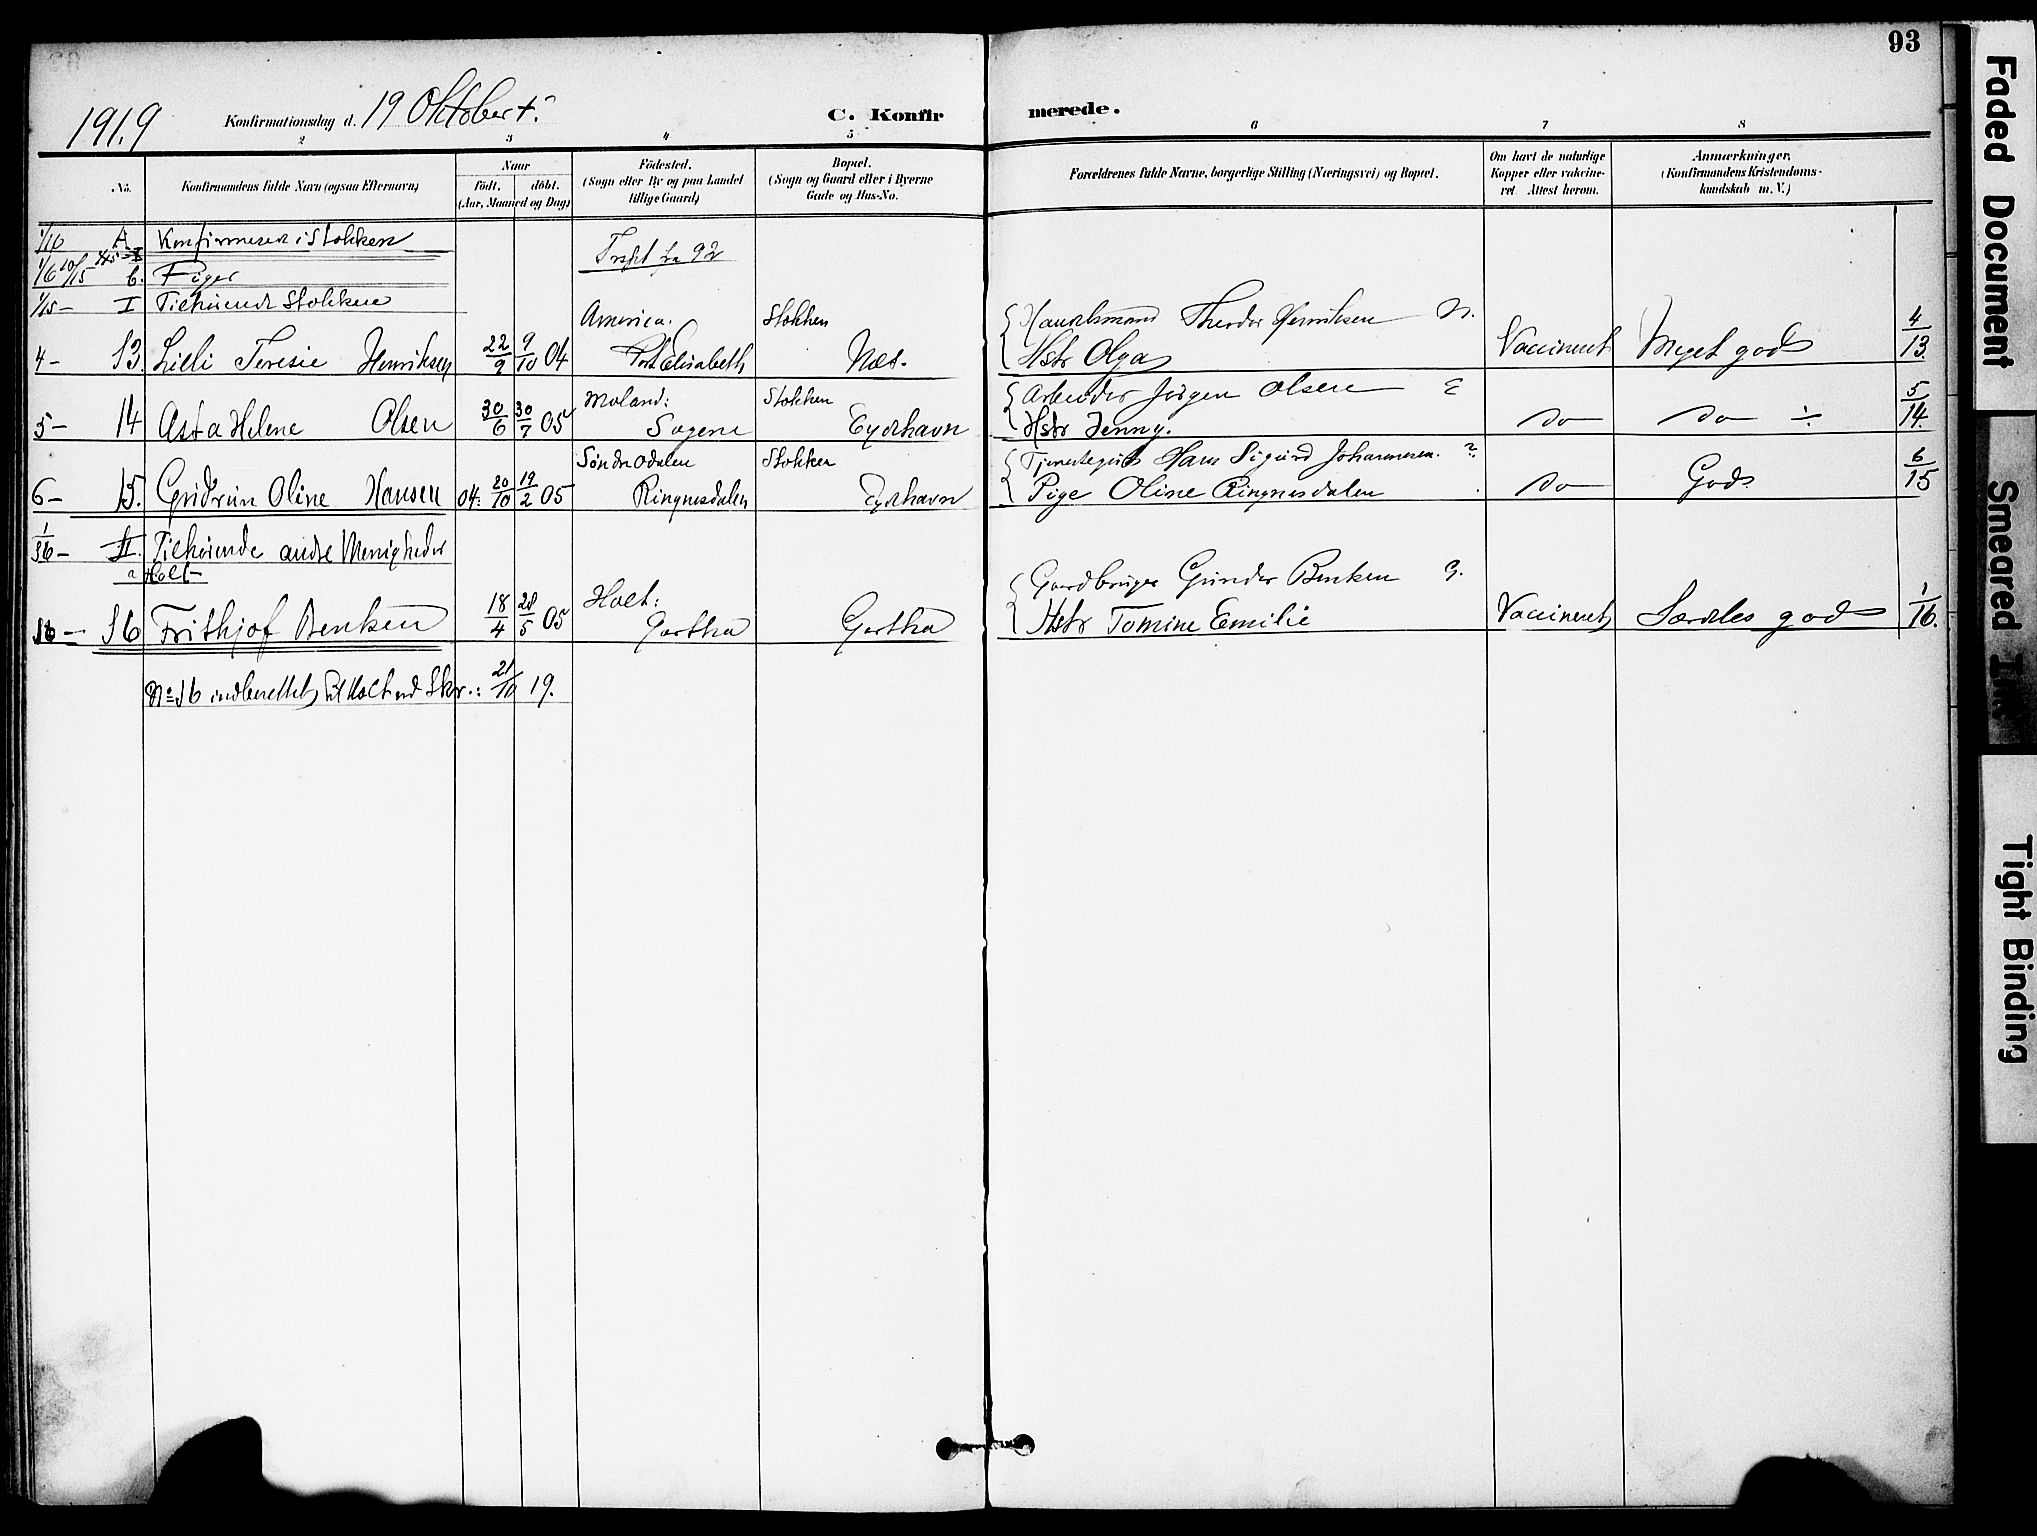 93
1919 Konfirmationsdag d. 19 Oktober C. Konfirmerede.
2 3 4 5 6 7 8
No.
Konfirmandens fulde Navn (ogsaa Efternavn)
Naar
født. døbt.
(Aar, Maaned og Dag)
Födested.
(Sogn eller By og paa Landet
tillige Gaard)
Bopæl.
(Sogn og Gaard eller i Byerne
Gade og Hus-No.
Forældrenes fulde Navne, borgerlige Stilling (Næringsvei) og Bopæl.
Om havt de naturlige
Kopper eller vakcine-
ret Attest herom.
Anmærkninger.
(Konfirmandens Kristendoms-
kundskab m. V.)
1/16 A Konfirmerede i Stokken
b. Piger Trspt fra 92
1/15 - I Tilhørende Stokken
America. Stokken Theodor Henriksen N. 4
4 - 13. Lilli Teresie Henriksen 22/9 9/10 04 Port Elisabeth Næs. Hstr Olga Vaccineret Meget god 13.
Moland: Stokken Arbeider Jørgen Olsen E 5
5 - 14 Asta Helene Olsen 30/6 30/7 05 Sagene Eydehavn Hstr Jenny. do do ÷ 14.
Søndre Odalen Stokken Tjenestegut Hans Sigurd Johannesen. ? 6
6 - 15. Gudrun Oline Hansen 04: 20/10 19/2 05 Ringnesdalen Eydehavn Pige Oline Ringnesdalen do God. 15
1/16 - II. Tilhørende andre Menigheder
a Holt
Holt: Gaardbruger Gunder Benken G. 1
16 - 16 Frithjof Benken 18/4 28/5 05 Goderstad Hstr Tomine Emilie Vaccineret Særdeles god 16.
No 16 indberettet til Holt ved Skr.: 21/10 19.
Faded Document
Smeared Ink
Tight Binding